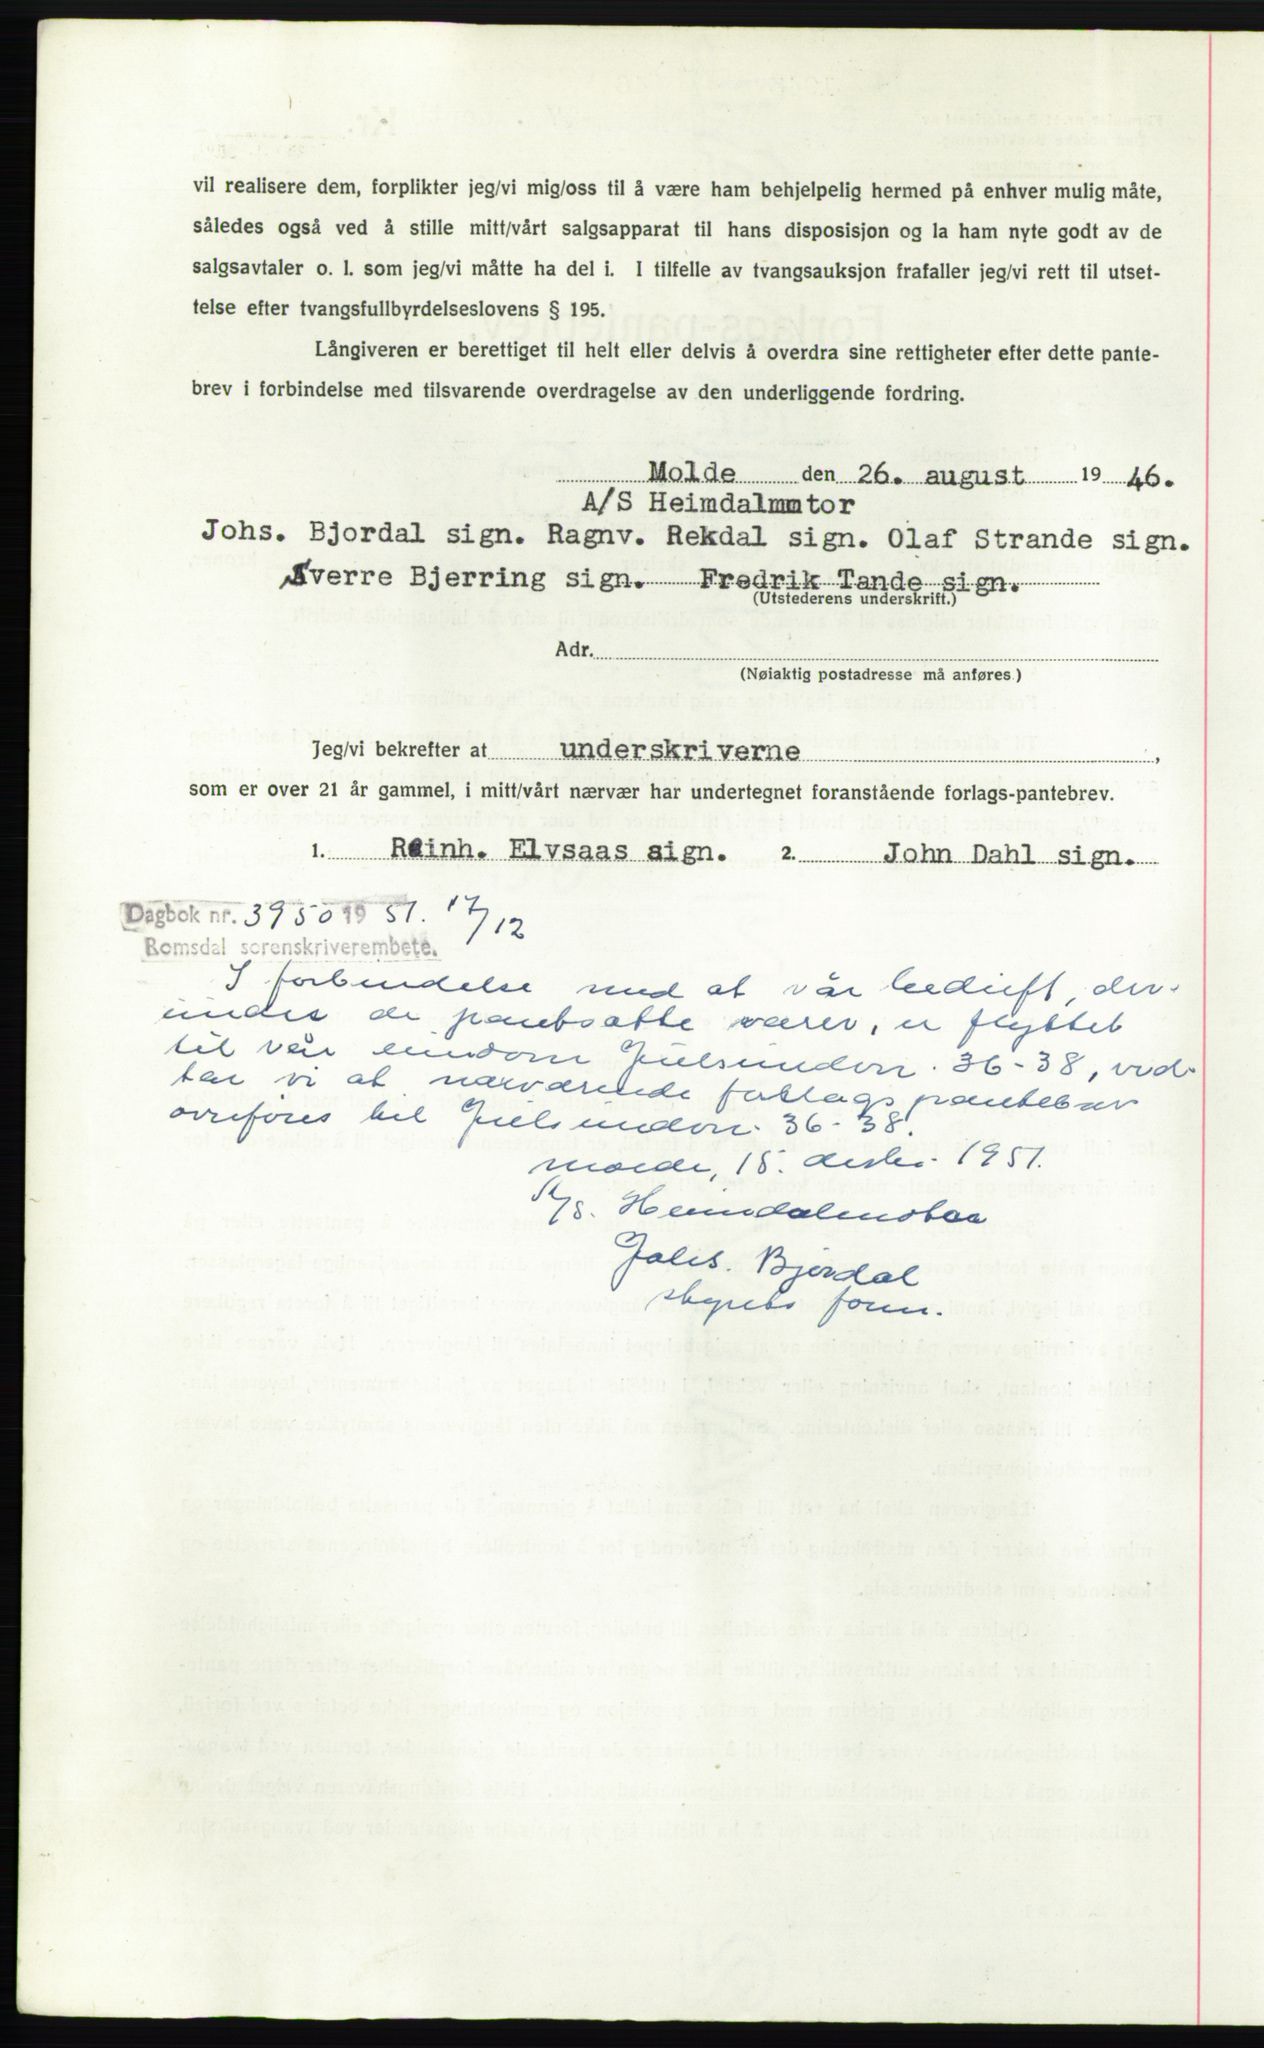 vil realisere dem, forplikter jeg/vi mig/oss til å være ham behjelpelig hermed på enhver mulig måte,
således også ved å stille mitt/vårt salgsapparat til hans disposisjon og la ham nyte godt av de
salgsavtaler o. l. som jeg/vi måtte ha del i. I tilfelle av tvangsauksjon frafaller jeg/vi rett til utset-
telse efter tvangsfullbyrdelseslovens § 195.
Långiveren er berettiget til helt eller delvis å overdra sine rettigheter efter dette pante-
brev i forbindelse med tilsvarende overdragelse av den underliggende fordring.
Molde den 26. august 19 46.
A/S Heimdalmotor
Johs. Bjordal sign. Ragnv. Rekdal sign. Olaf Strande sign.
Sverre Bjerring sign. Fredrik Tande sign.
(Utstederens underskrift.)
Adr.
(Nøiaktig postadresse må anføres.)
Jeg/vi bekrefter at underskriverne ,
som er over 21 år gammel, i mitt/vårt nærvær har undertegnet foranstående forlags-pantebrev.
1. Reinh. Elvsaas sign. 2. John Dahl sign.
Dagbok nr. 3950 19 51. 17/12
Romsdal sorenskriverembete.
I forbindelse med at vår bedrift, der-
under de pantsatte varer, er flyttet
til vår eiendom Julsundvn. 36-38, ved-
tar vi at nærværende forlagspantebrev
overføres til Julsundvn. 36-38.
Molde, 15. desbr. 1951.
A/S. Heimdalmotor
Johs. Bjordal
styrets form.